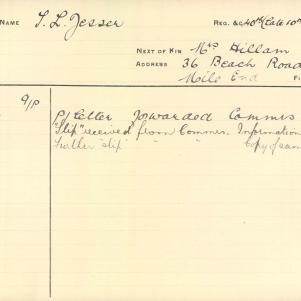 NAME T. L. Jesser REG. &C 40th (late 10th
NEXT OF KIN Mrs Hillam
ADDRESS 36 Beach Road
Mile End F
9/10 P/ Letter forwarded Commrs
"Slip" received from Commrs. Information
Further "slip" " " Copy of sam